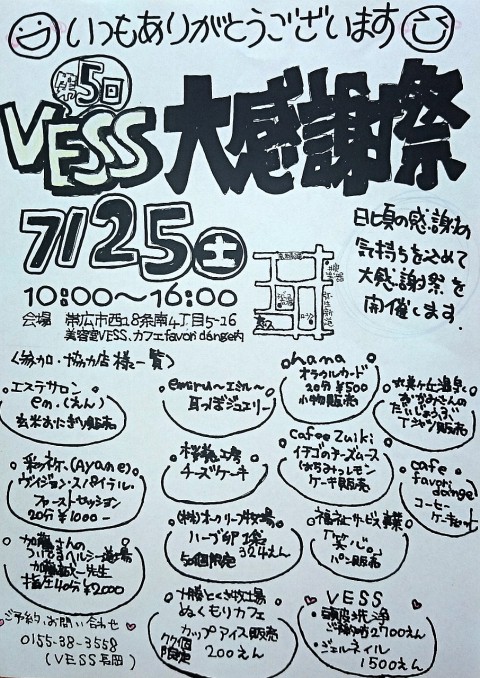 いつもありがとうございます
第5回
VESS 大感謝祭
7/25土
10:00〜16:00
会場 帯広市西18条南4丁目5-16
美容室VESS、カフェfavori dange内
日頃の感謝の
気持ちを込めて
大感謝祭を
開催します.
〈参加・協力店様一覧〉
エステサロン
em.(えん)
玄米おにぎり販売
emiru〜エミル〜
耳つぼジュエリー
hana
オラクルカード
20分¥500
小物販売
おかみさんの
だいじょうぶ
Tシャツ販売
彩祢.(Ayane)
ヴィジョン・スパイラル.
ファーストセッション
20分¥1000-
工房
チーズケーキ
Cafee Zuiki
イチゴのチーズムース
はちみつレモン
ケーキ販売
cafe
favori
dange
コーヒー
ケーキセット
加藤さんの
ヘルシー道場
加藤 先生
指圧40分¥2000
(株)オークリーフ牧場
ハーブ卵1袋
50個限定 324えん
福祉サービス事業
「笑心」
パン販売
十勝とくぎ牧場
ぬくもりカフェ
カップアイス販売
限定 200えん
VESS
・頭皮洗浄
2700えん
・ジェルネイル
1500えん
ご予約、お問い合わせ
0155-38-3558
(VESS長岡)